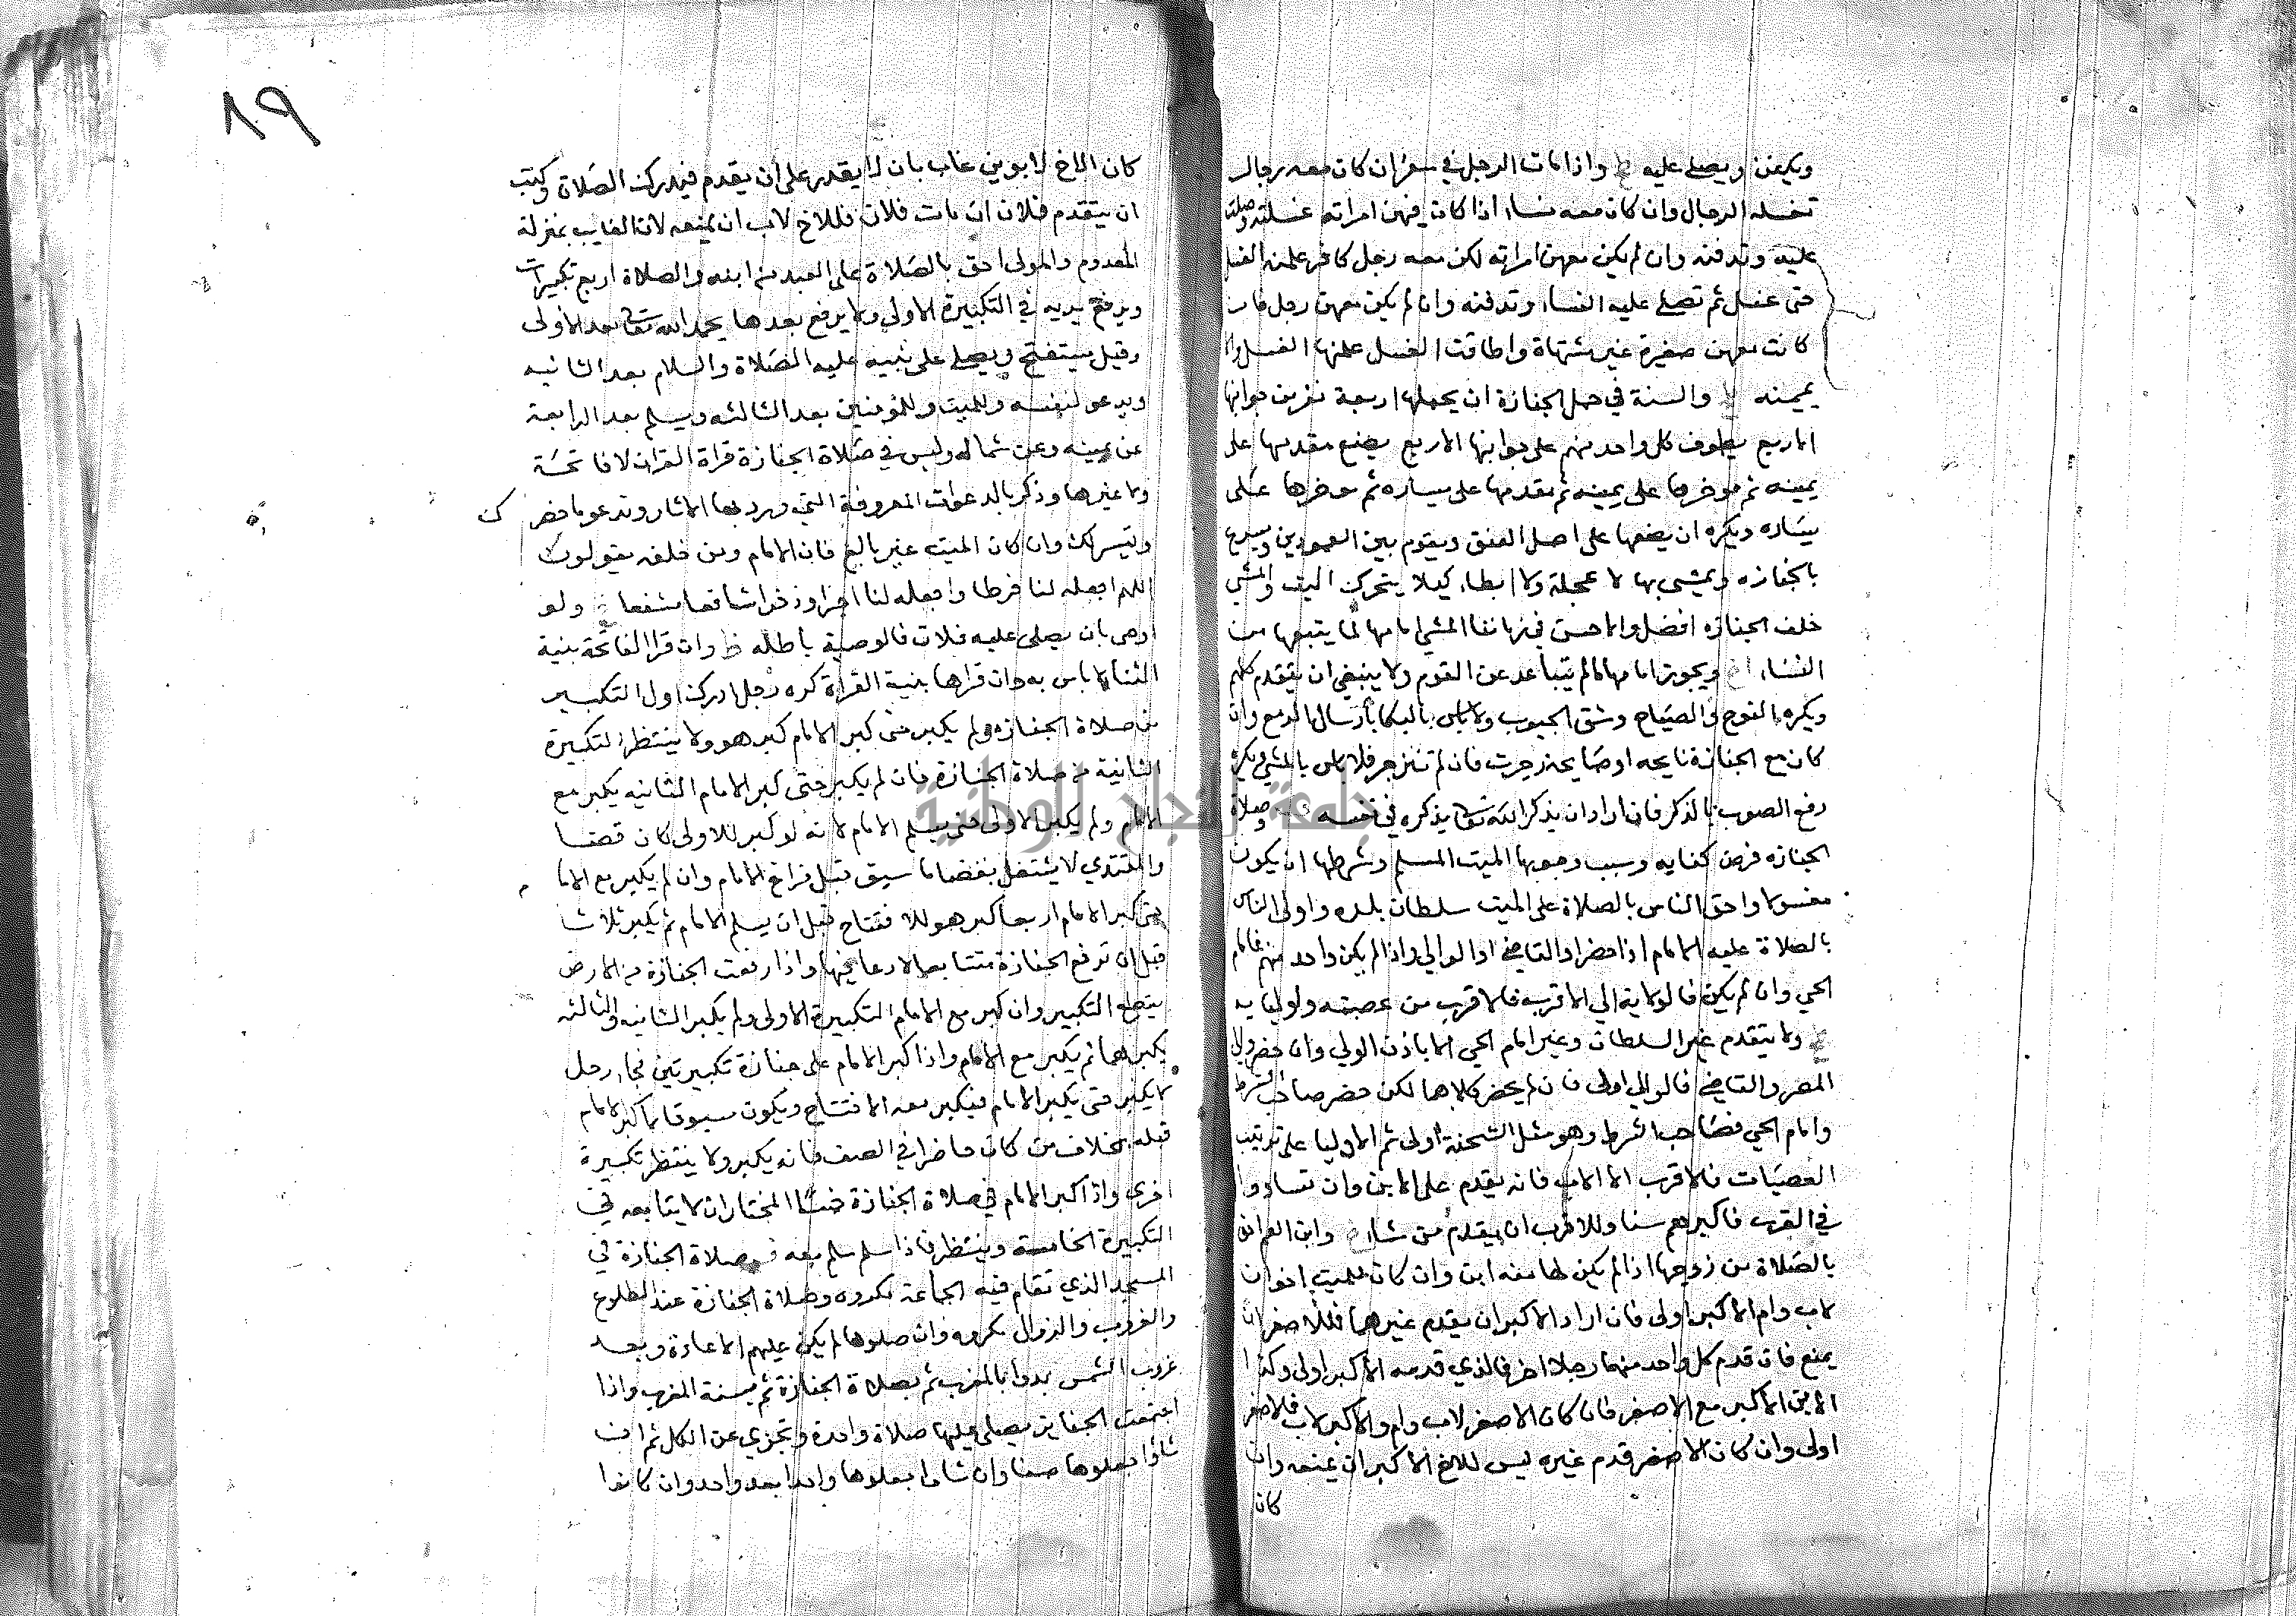 ويكفن ويصلى عليه واذا مات الرجل في سفر ان كان معه رجال
تغسله الرجال وان كان معه نساء اذا كان فيهن امراته غسلته وصلت
عليه وتدفنه وان لم يكن معهن امراته لكن معه رجل كافر علمنه الغسل
حتى غسل ثم تصلي عليه النساء وتدفنه وان لم يكن معهن رجل فان
كانت معهن صغيرة غير مشتهاة واطاقت الغسل علمنها الغسل والا
يممنه والسنة في حمل الجنازة ان يحملها اربعة نفر من جوانبها
الاربع يطوف كل واحد منهم على جوانبها الاربع يضع مقدمها على
يمينه ثم موخرها على يمينه ثم مقدمها على يساره ثم موخرها على
يساره ويكره ان يضعها على اصل العنق ويقوم بين العمودين ويسرع
بالجنازه ويمشي بها لا عجلة ولا ابطاء كيلا يتحرك الميت والمشي
خلف الجنازه افضل والاحسن في زماننا المشي امامها لما يتبعها من
النساء ويجوز امامها ما لم يتباعد عن القوم ولا ينبغي ان يتقدم كلهم
ويكره النوح والصياح وشق الجيوب ولا باس بالبكا بارسال الدمع وان
كان مع الجنازة نايحه او صايحه زجرت فان لم تنزجر فلا باس بالمشي ويكره
رفع الصوت بالذكر فان اراد ان يذكر الله تعالى يذكره في نفسه وصلاة
الجنازه فرض كفايه وسبب وجوبها الميت المسلم وشرطها ان يكون
مغسولا واحق الناس بالصلاة على الميت سلطان بلده واولى الناس
بالصلاة عليه الامام اذا حضر او القاضي او الوالي واذا لم يكن واحد منهم فامام
الحي وان لم يكن فالولاية الي الاقرب فالاقرب من عصبته ولوليا يه
ولا يتقدم غير السلطان وغير امام الحي الا باذن الولي وان حضر والي
المصر والقاضي فالوالي اولى فان لم يحضر كلاهما لكن حضر صاحب الشرط
وامام الحي فصاحب الشرط وهو مثل الشحنة اولى ثم الاوليا على ترتيب
العصبات فالاقرب الا الاب فانه يقدم على الابن وان تساووا
في القرب فاكبرهم سنا وللاقرب ان يقدم من شاء وابن العم احق
بالصلاة من زوجها اذا لم يكن لها منه ابن وان كان للميت اخوان
لاب وام الاكبر اولى فان اراد الاكبر ان يقدم غيرهما فللاصغر ان
يمنع فان قدم كل واحد منهما رجلا اخر فالذي قدمه الاكبر اولى وكذا
الابن الاكبر مع الاصغر فان كان الاصغر لاب وام والاكبر لاب فالاصغر
اولى وان كان الاصغر قدم غيره ليس للاخ الاكبر ان يمنعه وان
كان
٨٩
كان الاخ لابوين غاب بان لا يقدر على ان يقدم فيدرك الصلاة وكتب
ان يتقدم فلان ان مات فلان فللاخ لاب ان يمنعه لان الغايب بمنزلة
المعدوم والمولى احق بالصلاة على العبد من ابنه والصلاة اربع تكبيرات
ويرفع يديه في التكبيرة الاولى ولا يرفع بعدها يحمد الله تعالى بعد الاولى
وقيل يستفتح ويصلي على نبيه عليه الصلاة والسلام بعد الثانيه
ويدعو لنفسه وللميت وللمؤمنين بعد الثالثه ويسلم بعد الرابعة
عن يمينه وعن شماله وليس في صلاة الجنازة قراة القران لا فاتحة
ولا غيرها وذكر بالدعوات المعروفة التي ورد بها الاثار وتدعو ما حضر ك
وتيسر لك وان كان الميت غير بالغ فان الامام ومن خلفه يقولون
اللهم اجعله لنا فرطا واجعله لنا اجرا وذخرا شافعا مشفعا ولو
اوصى بان يصلي عليه فلان فالوصية باطله وان قرا الفاتحة بنية
الثنا لا باس به وان قراها بنية القراة كره رجل ادرك اول التكبير
من صلاة الجنازه ولم يكبر حتى كبر الامام كبر هو ولا ينتظر التكبيرة
الثانية من صلاة الجنازة فان لم يكبر حتى كبر الامام الثانيه يكبر مع
الامام ولم يكبر الاولى حتى يسلم الامام لانه لو كبر للاولى كان قضا
والمقتدي لا يشتغل بقضا ما سبق قبل فراغ الامام وان لم يكبر مع الاما م
حتى كبر الامام اربعا كبر هو للافتتاح قبل ان يسلم الامام ثم يكبر ثلاثا
قبل ان ترفع الجنازة متتابعا لا دعا فيها واذا رفعت الجنازة من الارض
يقطع التكبير وان كبر مع الامام التكبيرة الاولى ولم يكبر الثانيه والثالثه
يكبرهما ثم يكبر مع الامام واذا كبر الامام على جنازة تكبيرتين فجاء رجل
لا يكبر حتى يكبر الامام فيكبر معه الافتتاح ويكون مسبوقا بما كبر الامام
قبله بخلاف من كان حاضرا في الصف فانه يكبر ولا ينتظر تكبيرة
اخرى واذا كبر الامام في صلاة الجنازة خمسا المختار ان لا يتابعه في
التكبيرة الخامسة وينتظر فاذا سلم سلم معه وصلاة الجنازة في
المسجد الذي تقام فيه الجماعة مكروه وصلاة الجنازة عند الطلوع
والغروب والزوال مكروه وان صلوها لم يكن عليهم الاعادة وبعد
غروب الشمس بدوا بالمغرب ثم بصلاة الجنازة ثم بسنة المغرب واذا
اجتمعت الجنايز يصلي عليها صلاة واحدة وتجزي عن الكل ثم ان
شاؤا جعلوها صفا وان شاءوا جعلوها واحدا بعد واحد وان كانوا
جامعة النجاح الوطنية